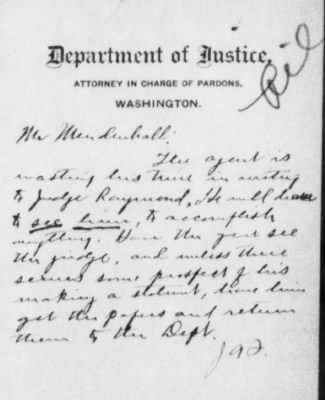 Department of Justice,
ATTORNEY IN CHARGE OF PARDONS,
WASHINGTON.
Mr Mendenhall:
The agent is
wasting his time in writing
to Judge Raymond, He will have
to see him, to accomplish
anything. Have the agent see
the judge, and unless there
seems some prospect of his
making a statement, have him
get the papers and return
them to the Dept.